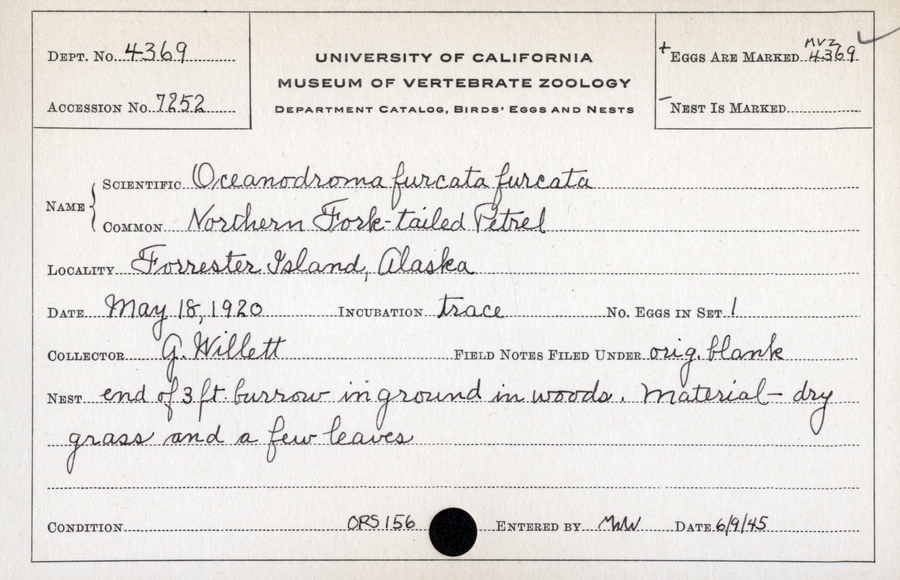 DEPT. No. 4369
ACCESSION No. 7252
UNIVERSITY OF CALIFORNIA
MUSEUM OF VERTEBRATE ZOOLOGY
DEPARTMENT CATALOG, BIRDS' EGGS AND NESTS
MVZ
+ EGGS ARE MARKED 4369
- NEST IS MARKED
NAME
SCIENTIFIC Oceanodroma furcata furcata
COMMON Northern Fork-tailed Petrel
LOCALITY Forrester Island, Alaska
DATE May 18, 1920 INCUBATION trace NO. EGGS IN SET 1
COLLECTOR G. Willett FIELD NOTES FILED UNDER orig. blank
NEST end of 3 ft. burrow in ground in woods. Material - dry
grass and a few leaves
CONDITION ORS 156 ENTERED BY MWW DATE 6/9/45